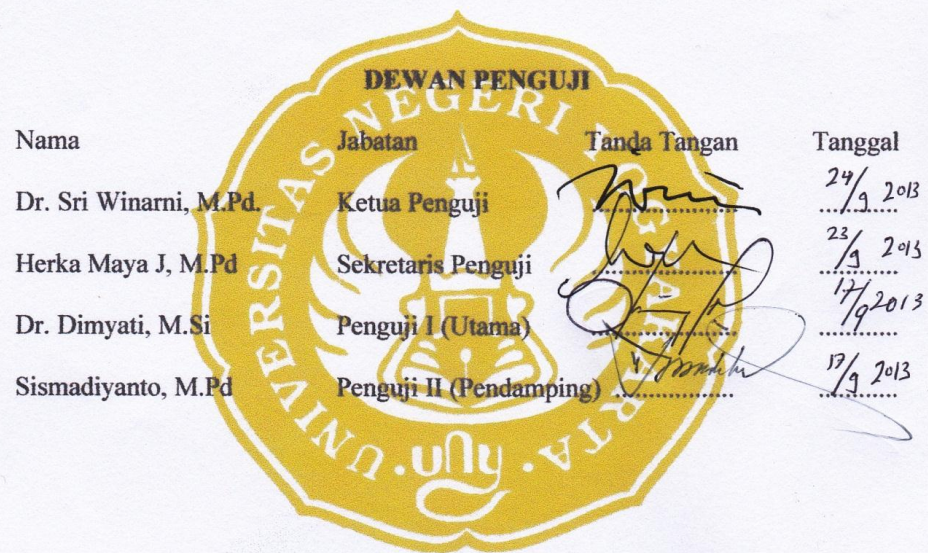 DEWAN PENGUJI
Nama Jabatan Tanda Tangan Tanggal
Dr. Sri Winarni, M.Pd. Ketua Penguji ................ 24/9 2013
Herka Maya J, M.Pd Sekretaris Penguji ................ 23/9 2013
Dr. Dimyati, M.Si Penguji I (Utama) ................ 17/9 2013
Sismadiyanto, M.Pd Penguji II (Pendamping) ................ 17/9 2013
UNIVERSITAS NEGERI YOGYAKARTA
uny